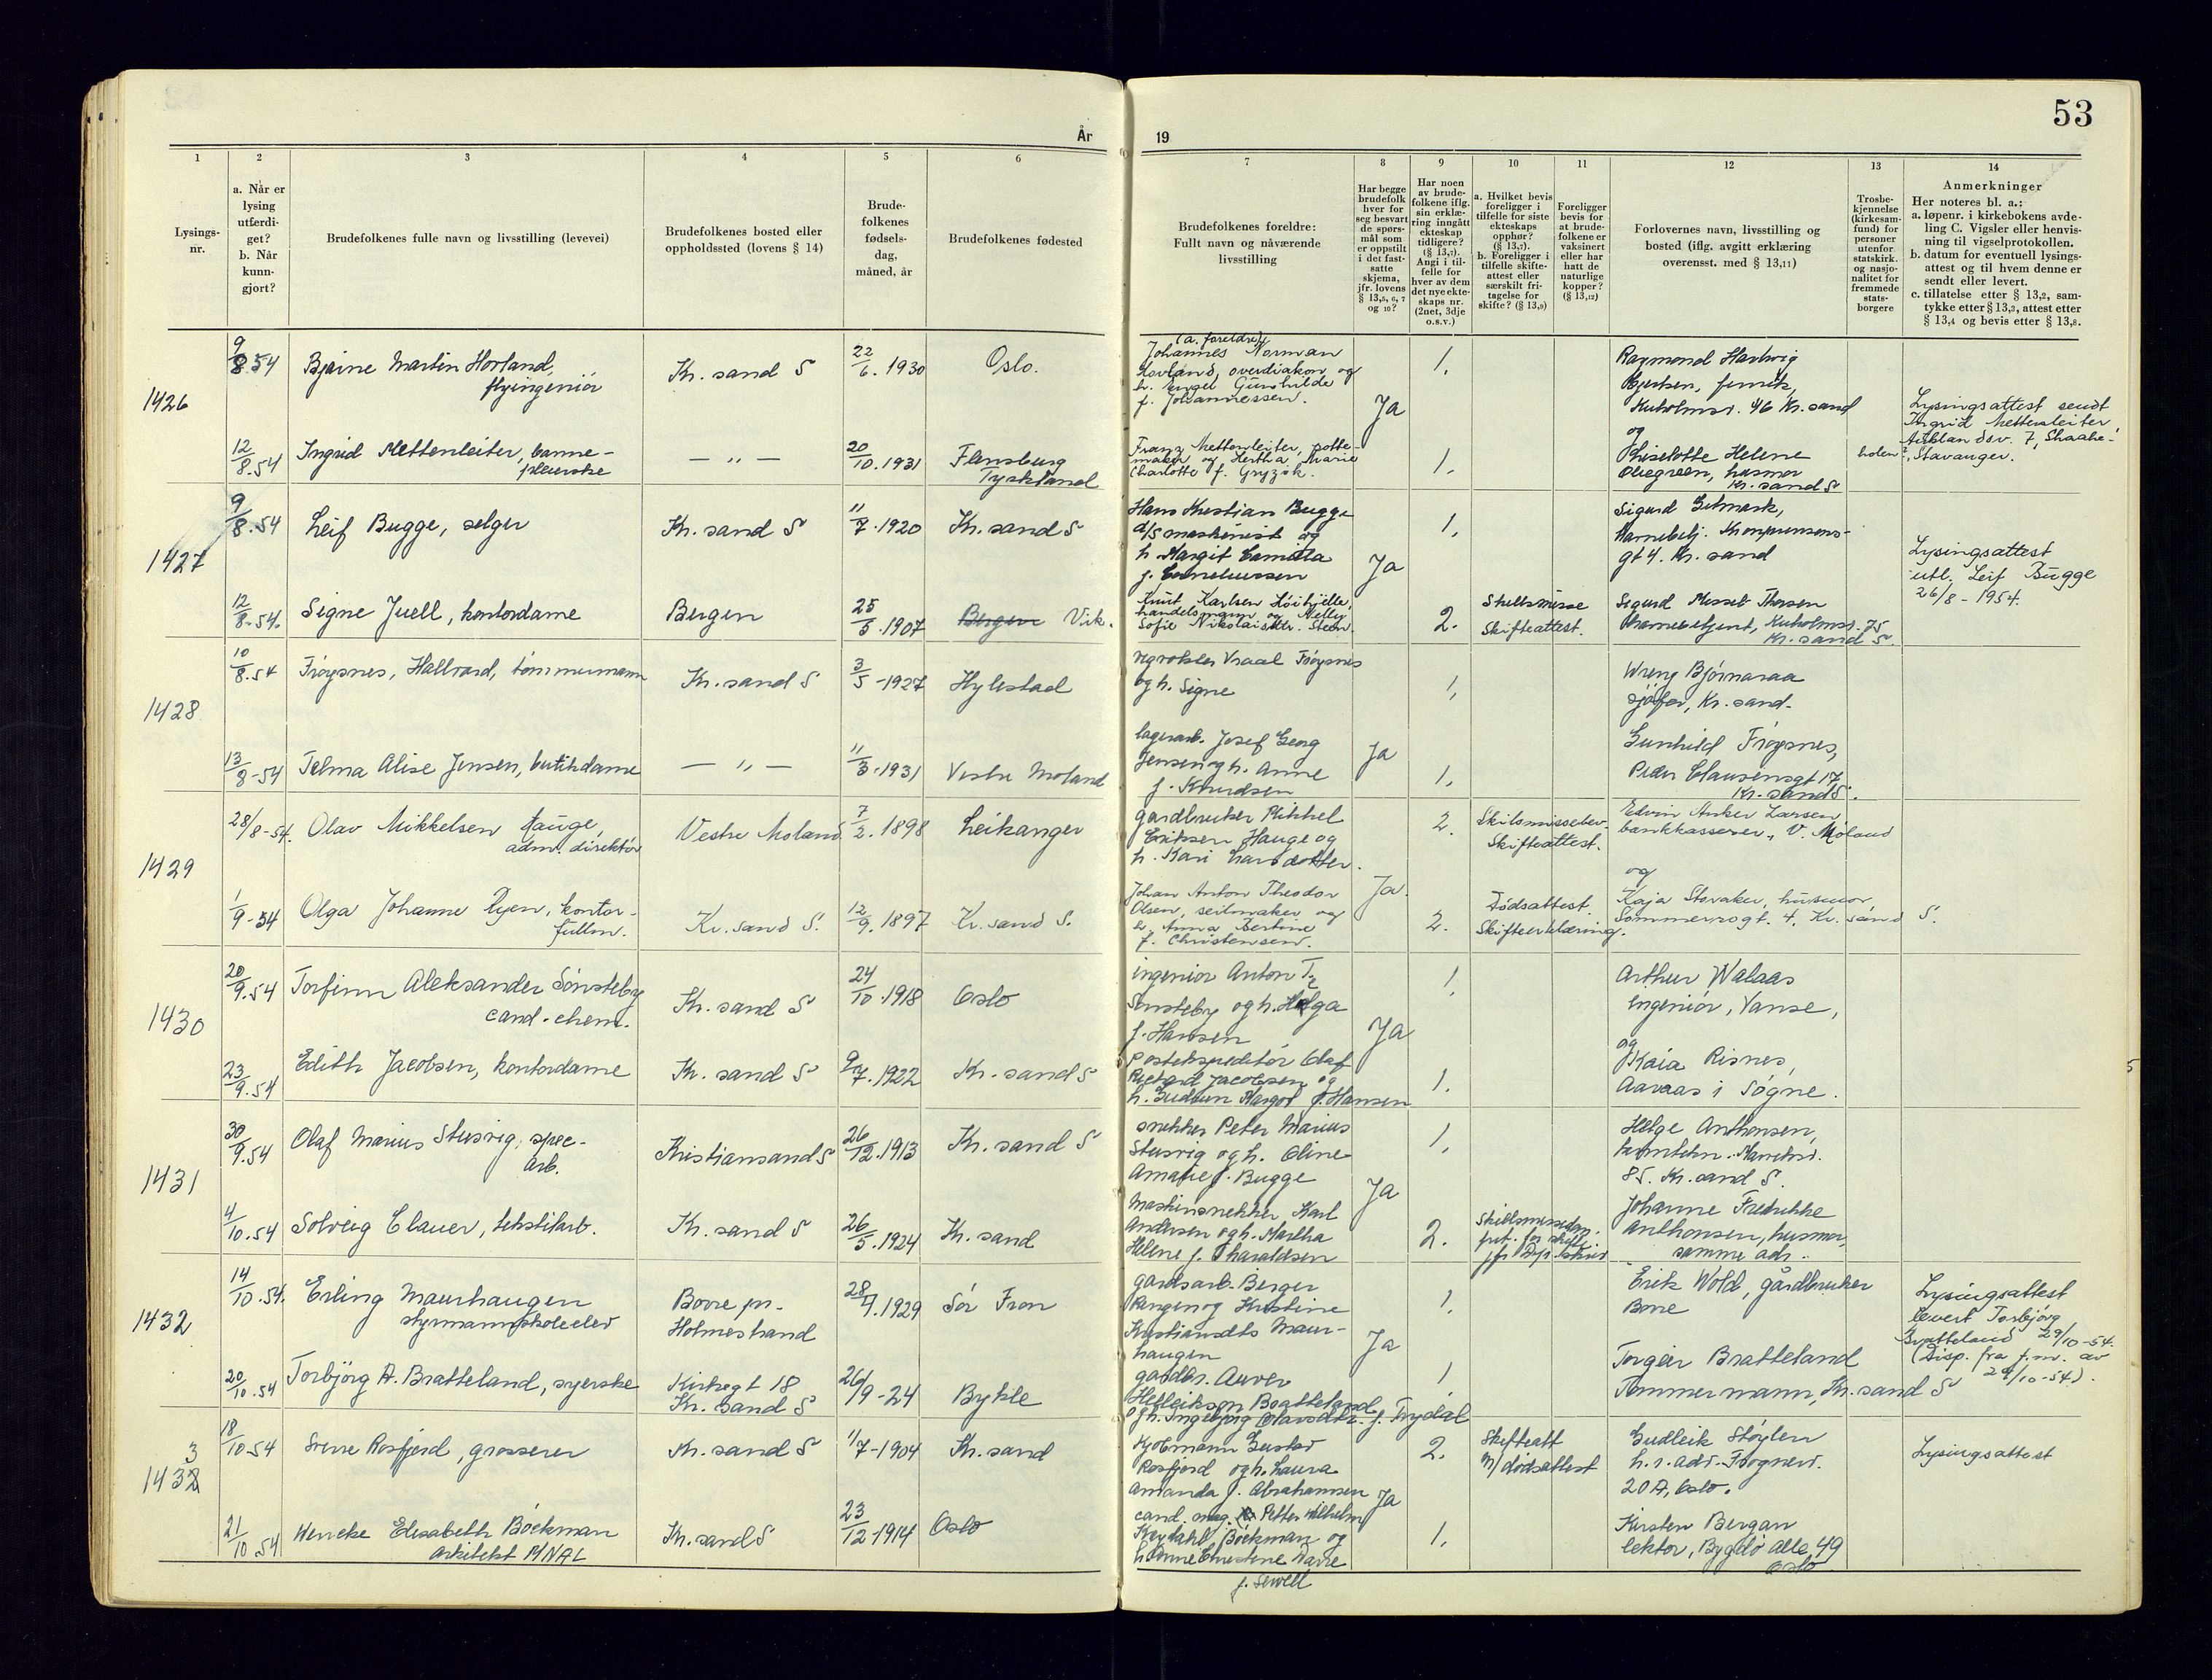 53
År
19
1
2
3
4
5
6
7
8
9
10
11
12
13
14
Lysings-
nr.
a. Når er
lysing
utferdi-
get?
b. Når
kunn-
gjort?
Brudefolkenes fulle navn og livsstilling (levevei)
Brudefolkenes bosted eller
oppholdssted (lovens § 14)
Brude-
folkenes
fødsels-
dag,
måned, år
Brudefolkenes fødested
Brudefolkenes foreldre:
Fullt navn og nåværende
livsstilling
Har begge
brudefolk
hver for
seg besvart
de spørs-
mål som
er oppstilt
i det fast-
satte
skjema,
jfr. lovens
§ 13,5, 6, 7
og 10?
Har noen
av brude-
folkene iflg.
sin erklæ-
ring inngått
ekteskap
tidligere?
(§ 13,7).
Angi i til-
felle for
hver av dem
det nye ekte-
skaps nr.
(2net, 3dje
o.s.v.)
a. Hvilket bevis
foreligger i
tilfelle for siste
ekteskaps
opphør?
(§ 13,7).
b. Foreligger i
tilfelle skifte-
attest eller
særskilt fri-
tagelse for
skifte? (§ 13,9)
Foreligger
bevis for
at brude-
folkene er
vaksinert
eller har
hatt de
naturlige
kopper?
(§ 13,12)
Forlovernes navn, livsstilling og
bosted (iflg. avgitt erklæring
overensst. med § 13,11)
Trosbe-
kjennelse
(kirkesam-
fund) for
personer
utenfor
statskirk.
og nasjo-
nalitet for
fremmede
stats-
borgere
Anmerkninger
Her noteres bl. a.:
a. løpenr. i kirkebokens avde-
ling C. Vigsler eller henvis-
ning til vigselprotokollen.
b. datum for eventuell lysings-
attest og til hvem denne er
sendt eller levert.
c. tillatelse etter § 13,2, sam-
tykke etter § 13,3, attest etter
§ 13,4 og bevis etter § 13,8.
1426
9/8 54
Bjarne Martin Hovland,
flyingeniør
Kr. sand S
22/6. 1930
Oslo.
(a. foreldre)
Johannes Norman
Hovland, overdiakon og
h. Engel Gunhilde
f. Johannessen.
Ja
1.
Raymond Hartvig
fenrik,
Kuholmsv. 46 Kr. sand
og
Lysingsattest sendt
Ingrid Mettenleiter
7,
Stavanger.
12/8.54
Ingrid Mettenleiter, barne-
pleierske
— „ —
20/10.1931
Flensburg
Tyskland
Franz Mettenleiter, potte-
maker og Hertha Marie
Charlotte f.
1.
Liselotte Helene
Olsegreen, husmor
Kr. sand S
1427
9/8.54
Leif Bugge, selger
Kr. sand S
11/7.1920
Kr. sand S
Hans Kristian Bugge
d/s maskinist og
h. Margit Camilla
f. Corneliussen
Ja
1.
Sigurd
gt 4. Kr. sand
Lysingsattest
utl. Leif Bugge
26/8 - 1954.
12/8.54.
Signe Juell, kontordame
Bergen
25/5.1907
Bergen Vik.
Knut Karlsen
handelsmann og Nelly
Sofie
2.
Skilsmisse
Skifteattest.
Sigurd Thorsen
Kuholmsv. 75
Kr. sand S.
1428
10/8.54
Frøysnes, Hallvard, tømmermann
Kr. sand S
3/5 -1927
Hylestad
Vraal Frøysnes
og h. Signe
Ja
1,
Wreny Bjørnaraa
sjåfør, Kr. sand.
13/8-54
Telma Alise Jensen, butikdame
— „ —
11/3.1931
Vestre Moland
lagerarb. Josef Georg
Jensen og h. Anne
f. Knudsen
1.
Gunhild Frøysnes,
Peder Clausensgt 17,
Kr. sand S.
1429
28/8-54.
Olav Mikkelsen Hauge,
adm. direktør
Vestre Moland
7/2. 1898
Leikanger
gardbruker Mikkel
Eriksen Hauge og
h. Kari Larsdotter.
Ja.
2.
Skilsmissebev.
Skifteattest.
Edvin Anker Larsen
bankkasserer, V. Moland
og
1/9-54
Olga Johanne Ryen, kontor-
fullm.
Kr. sand S.
12/9. 1897
Kr. sand S.
Johan Anton Theodor
Olsen, seilmaker og
h. Anna Bertine
f. Christensen.
2.
Dødsattest.
Skifteerklæring.
Kaja Storaker, husmor
Sommerrogt. 4, Kr. sand S.
1430
20/9.54
Torfinn Aleksander Sønsteby
cand. chem.
Kr. sand S
24/10.1918
Oslo
ingeniør Anton T.
Sønsteby og h. Helga
f. Hansen
Ja
1.
Arthur Walaas
ingeniør, Vanse,
og
23/9.54
Edith Jacobsen, kontordame
Kr. sand S
7. 1922
Kr. sand S
Postekspeditør Olaf
Richard Jacobsen og
h. Gudrun Margot f. Hansen
1.
Kaia Risnes,
Aavaas i Søgne.
1431
30/9.54
Olaf Marius Stusvig, spec-
arb.
Kristiansand S
26/12.1913
Kr. sand S
snekker Peter Marius
Stusvig og h. Oline
Amalie f. Bugge
Ja
1.
Helge Anthonsen,
85. Kr. sand S.
4/10.54
Solveig Clauer, tekstilarb.
Kr. sand S
26/5.1924
Kr. sand
Maskinsnekker Karl
Andersen og h. Martha
Helene f. Tharaldsen
2.
Johanne Fredrikke
Anthonsen, husmor,
samme adr.
1432
14/10.54.
Erling Maurhaugen
styrmannskoleelev
Borre pr.
Holmestrand
28/7.1929
Sør Fron
gardsarb. Birger
Rangen og Kristine
Kristiansdts Maur-
haugen
Ja
1.
Erik Wold, gårdbruker
Borre
Lysingsattest
levert Torbjørg
Bratteland 29/10-54.
(Disp. fra f.m. av
29/10-54).
20/10.54
Torbjørg A. Bratteland, syerske
Kirkegt 18
Kr. sand S
26/9-24
Bykle
gardbr. Auver
Helleikson Bratteland
og h. Ingebjørg Olavsdtr. f. Trydal
1
Torgeir Bratteland
Tømmermann, Kr. sand S
3
1432
18/10-54
Sverre Rosfjord, grosserer
Kr. sand S
1/7-1904
Kr. sand
Kjøbmann Gustav
Rosfjord og h. Laura
Amanda f. Abrahamsen
Ja
2.
Skifteatt
m/dødsattest
Gudleik Støylen
h.r. adv. Frognerv.
20 A, Oslo.
Lysingsattest
21/10.54
Wencke Elisabeth Bøckman
arkitekt MNAL
Kr. sand S
23/12-1914
Oslo
cand. mag. Petter Wilhelm
Bøckman og
h. Anne Christene
f. Sewell
1.
Kirsten Bergan
lektor, Bygdø Alle 49
Oslo